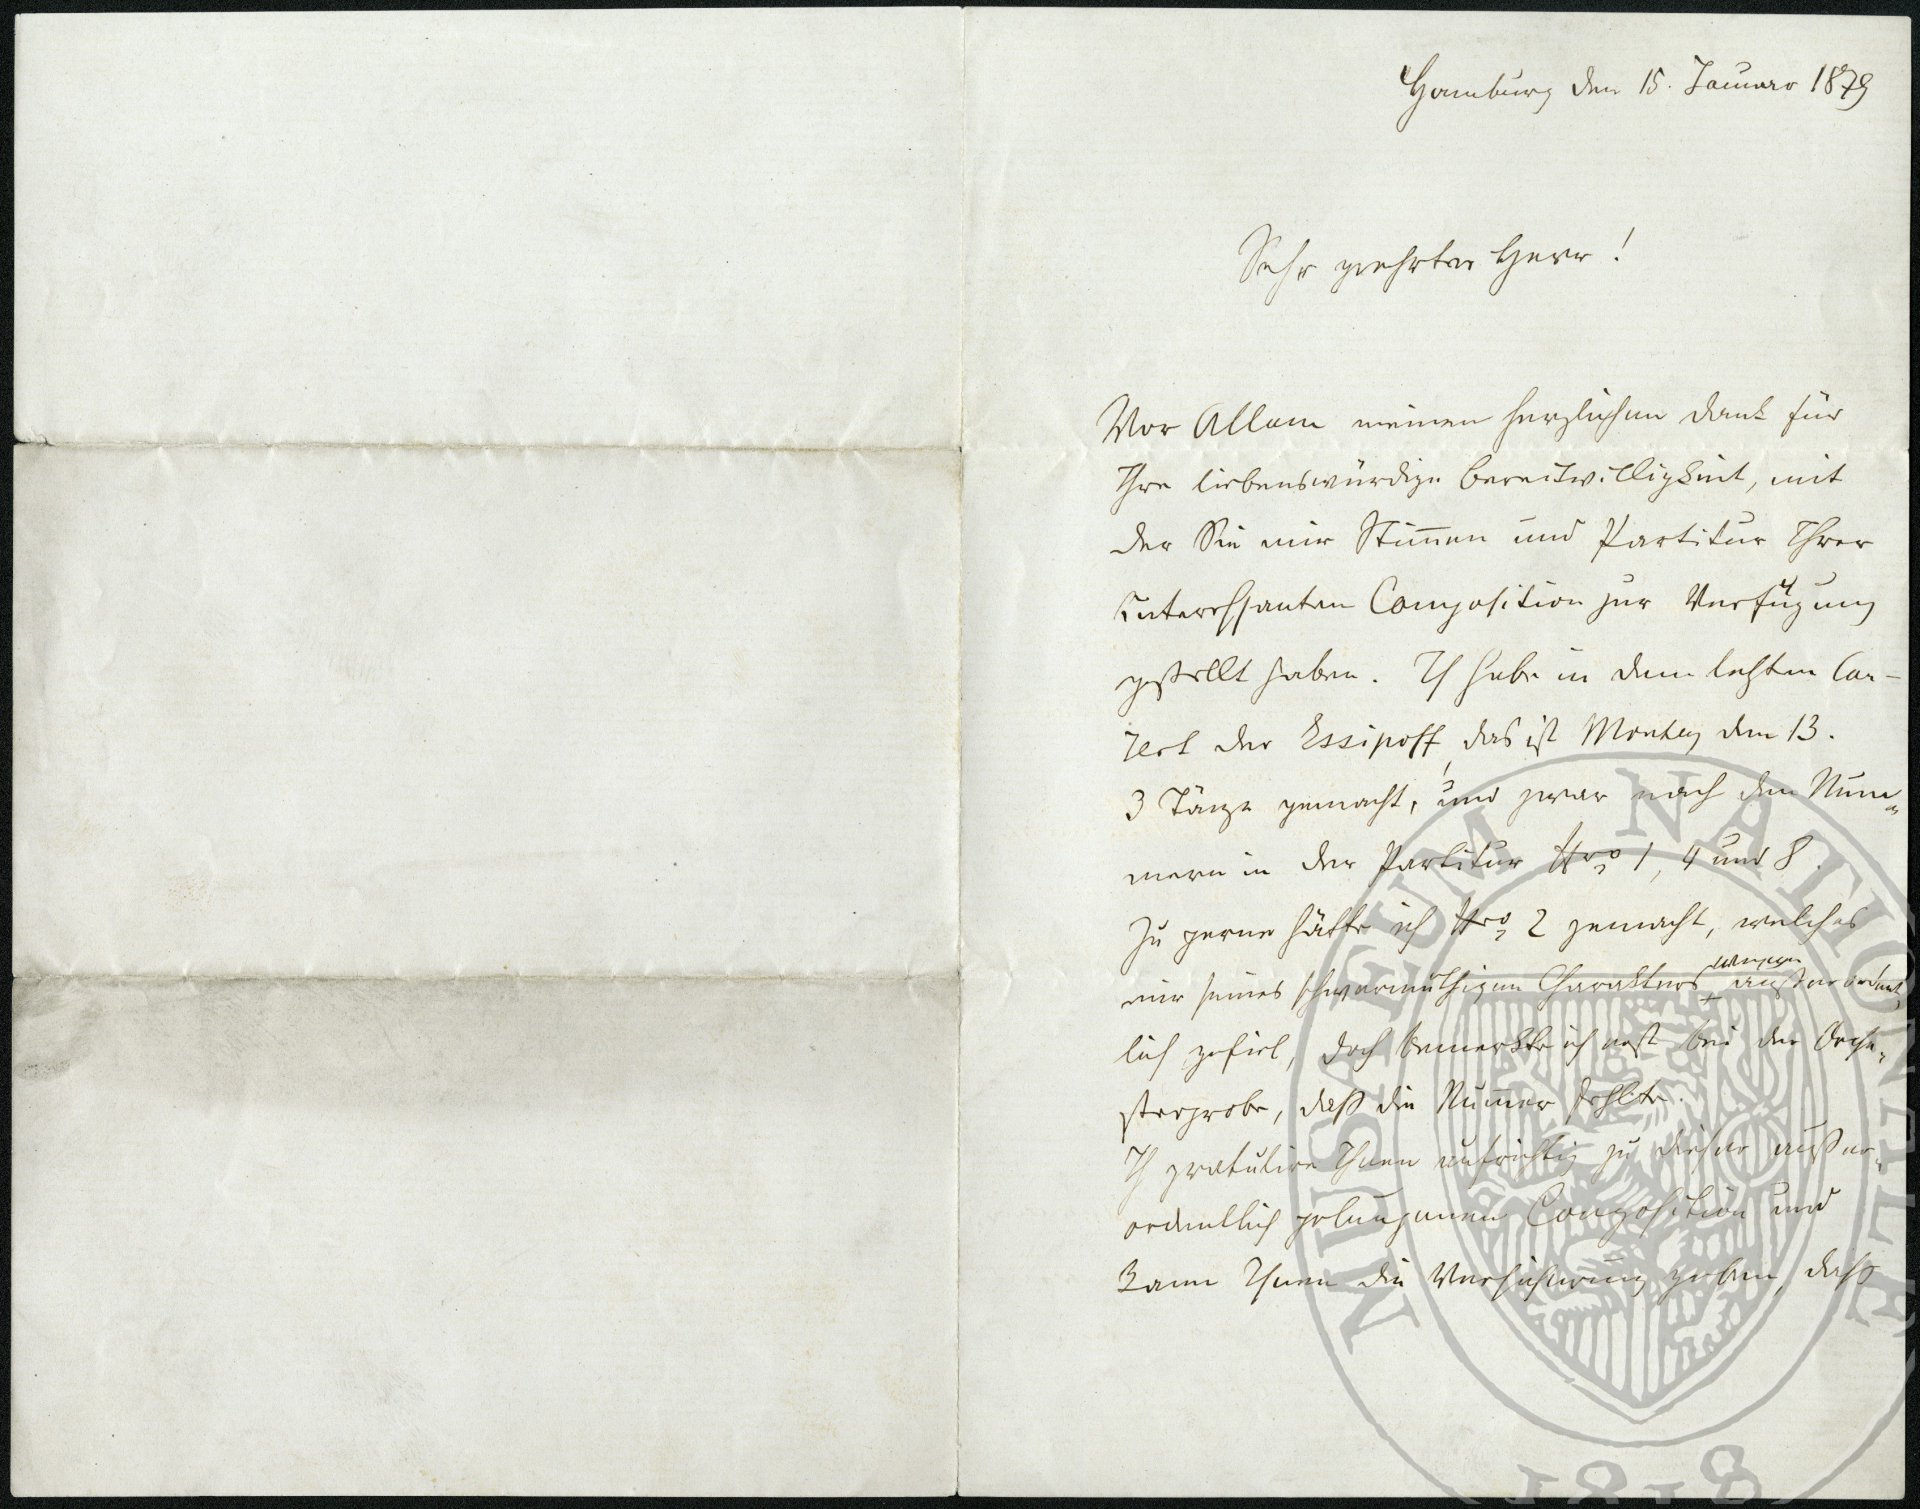 Hamburg den 15. Januar 1879
Sehr geehrter Herr!
Vor Allem meinen herzlichen Dank für
Ihre liebenswürdige Bereitwilligkeit, mit
der Sie mir Stim̅en und Partitur Ihrer
interessanten Composition zur Verfügung
gestellt haben. Ich habe in dem letzten Con-
zert der Essipoff, das ist Montag den 13.
3 Tänze gemacht, und zwar nach den Num-
mern in der Partitur Nro 1, 4 und 8.
Zu gerne hätte ich Nro 2 gemacht, welches
mir seines schwermüthigen Charakters wegen außerordent-
lich gefiel, doch bemerkte ich erst bei der Orche-
sterprobe, daß die Num̅er fehlte.
Ich gratulire Ihnen aufrichtig zu dieser außer-
ordentlich gelungenen Composition und
kann Ihnen die Versicherung geben, daß
MUSAEUM NATIONALE
1818